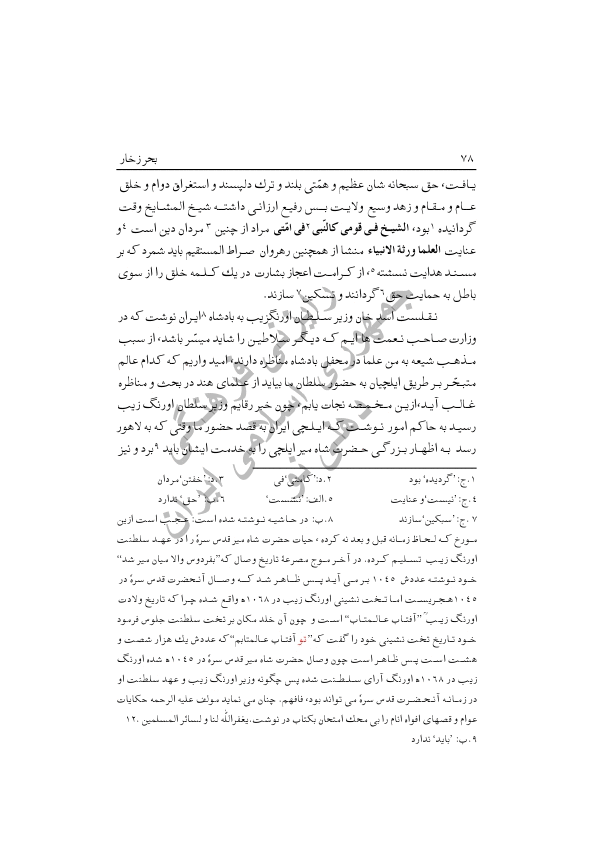 ۷۸ بحر زخار
یـافـت، حق سبحانه شان عظیم و همّتی بلند و ترك دلپسند و استغراق دوام و خلق
عـام و مـقـام و زهد وسیع ولایت بـس رفیع ارزانـی داشتـه شیـخ المشـایخ وقت
گردانیده ۱بود، الشیـخ فـی قومی کالنّبی ۲فی امّتی مراد از چنین ۳ مردان دین است ۴و
عنایت العلما ورثة الانبیاء منشا از همچنین رهروان صـراط المستقیم باید شمرد که بر
مسـنـد هدایت نسشته ۵، از کـرامـت اعجاز بشارت در یك کـلـمه خلق را از سوی
باطل به حمایت حق ۶ گردانند و تسکین ۷ سازند.
نـقـلـست اسد خان وزیر سـلـطان اورنگزیب به بادشاه ۸ایران نوشت که در
وزارت صاحـب نـعمـت ها ایـم کـه دیـگـر سـلاطـین را شاید میسّر باشد، از سبب
مـذهـب شیعه به من علما در محفل بادشاه مناظره دارند، امید واریم که کدام عالم
متبحّـر بـر طریق ایلچیان به حضور سلطان ما بیاید از عـلمای هند در بحث و مناظره
غـالـب آیـد،ازیـن مـخـمصه نجات یابم، چون خبر رقایم وزیر سلطان اورنگ زیب
رسیـد به حاکم امور نـوشـت کـه ایـلـچی ایران به قصد حضور ما وقتی که به لاهور
رسد به اظهـار بـزرگـی حـضرت شاه میر ایلچی را به خدمت ایشان باید ۹برد و نیز
۱.ج: 'گردیده' بود ۲.د:'کامتی'فی ۳.د: 'خفتن'مردان
۴.ج: 'نیست'و عنایت ۵.الف: 'نشست' ۶.ب: 'حق' ندارد
۷.ج: 'سبکین' سازند ۸.ب: در حـاشیـه نـوشتـه شده است: عـجـب است ازین
مـورخ کـه لـحـاظ زمـانه قبل و بعد نه کرده ، حیات حضرت شاه میر قدس سرهٗ را در عهـد سلطنت
اورنگ زیـب تسـلـیـم کـرده. در آخـر مـوج مصرعهٔ تاریخ وصال که"بفردوس والا میان میر شد"
خـود نـوشتـه عددش ۱۰۴۵ بـر مـی آیـد پـس ظـاهـر شـد کـه وصـال آنـحضرت قدس سرهٗ در
۱۰۴۵هـجریسـت امـا تـخت نشینی اورنگ زیب در ۱۰۶۸ه واقـع شـده چـرا که تاریخ ولادت
اورنگ زیـب "آفتـاب عـالـمتـاب" اسـت و چون آن خلد مکان بر تخت سلطنت جلوس فرمود
خـود تـاریخ تخت نشینی خود را گفت که"تو آفتاب عـالمتابم"که عددش یك هزار شصت و
هشـت اسـت پـس ظـاهر است چون وصال حضرت شاه میر قدس سرهٗ در ۱۰۴۵ه شده اورنگ
زیب در ۱۰۶۸ه اورنگ آرای سـلـطـنت شده پس چگونه وزیر اورنگ زیب و عهد سلطنت او
در زمـانـه آنـحـضـرت قدس سرهٗ می تواند بود، فافهم. چنان می نماید مولف علیه الرحمه حکایات
عوام و قصهای افواه انام را بی محك امتحان بکتاب در نوشت.یغفرالله لنا و لسائر المسلمین .۱۲
۹.ب: 'باید' ندارد